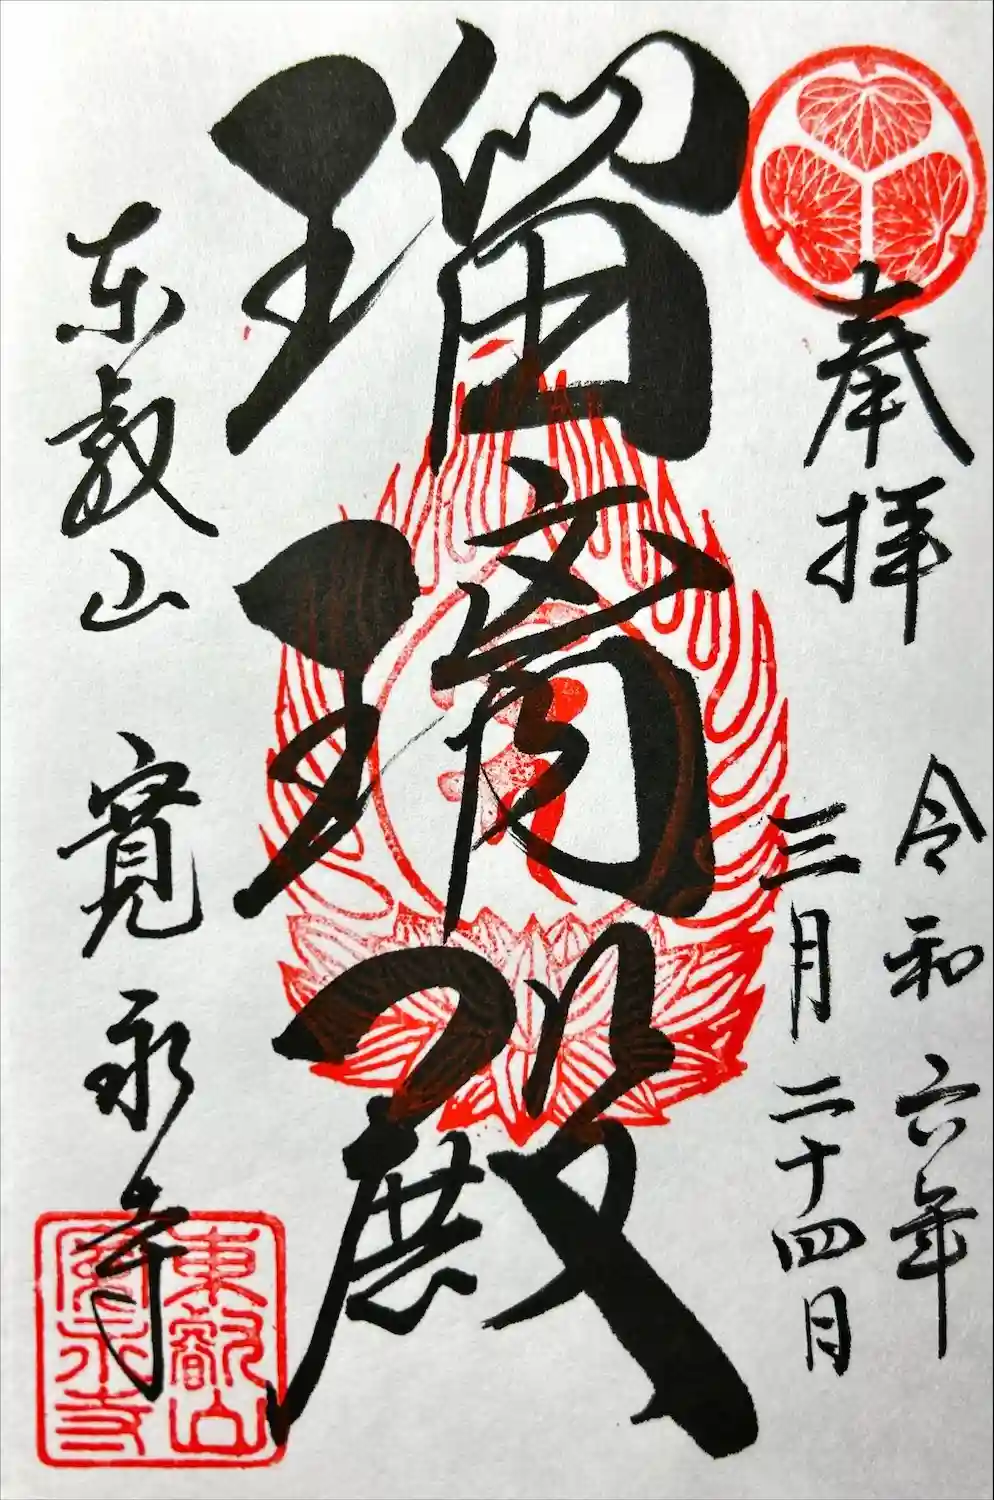 奉拝
令和六年
三月二十四日
瑠璃殿
東叡山 寛永寺
東叡山
寛永寺